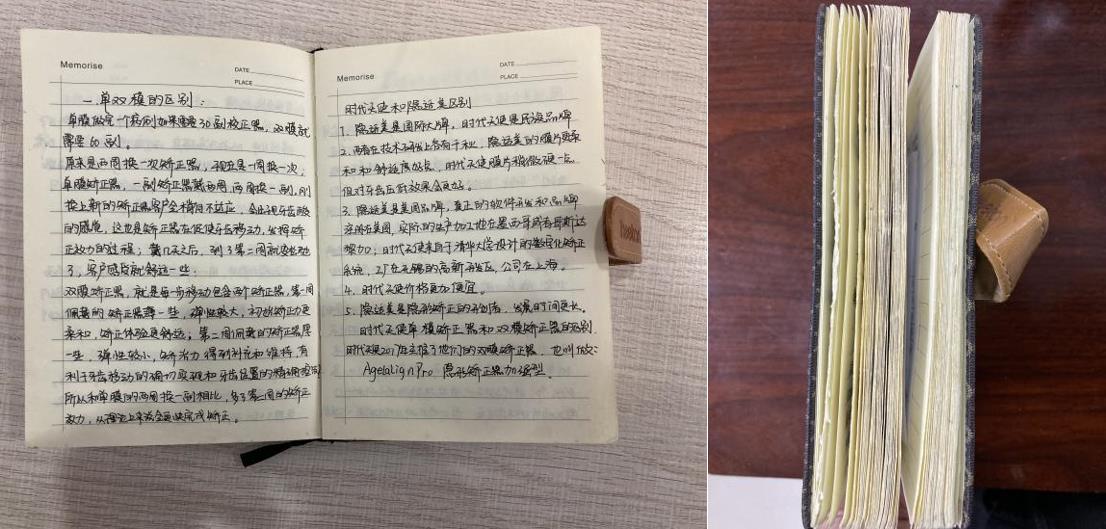 Memorise
DATE
PLACE
一.单双模的区别:
单膜做完一个病例如果需要30副校正器,双膜就
需要60副。
原来是两周换一次矫正器,现在是一周换一次,
单膜矫正器,一副矫正器戴两周,两周换一副,刚
换上新的矫正器客户会稍有不适应,会出现牙齿酸
的感觉,这也是矫正器在促使牙齿移动,发挥矫
正效力的过程;戴几天之后,到了第二周就变松动
了,客户感觉就舒适一些.
双膜矫正器,就是每一步移动包含两个矫正器,第一周
佩戴的矫正器薄一些,弹性较大,初始矫正力更
柔和,矫正体验更舒适;第二周佩戴的矫正器厚
一些,弹性较小,矫治力得到补充和维持,有
利于牙齿移动的确切实现和牙齿位置的精确控制
所以和单膜的两周换一副相比,多了第二周的矫正
效力,从理论上来说会更快完成矫正。
Memorise
DATE
PLACE
时代天使和隐适美区别
1、隐适美是国际大牌,时代天使是民族品牌
2、两者在技术研发上各有千秋,隐适美的膜片更柔
和和舒适度好点,时代天使膜片稍微硬一点
但对牙齿压低效果会更好。
3、隐适美是美国品牌,真正的软件研发和品牌
在美国,实际的生产加工地在墨西哥或者哥斯达
黎加;时代天使来自于清华大学设计的数字化矫正
系统,工厂在无锡的高新开发区,公司在上海。
4、时代天使价格更加便宜。
5、隐适美是隐形矫正的开创者,发展时间更长。
时代天使单模矫正器和双模矫正器的区别
时代天使2017年主推了他们的双膜矫正器,也叫做:
AgelalignPro 隐形矫正器加强型。